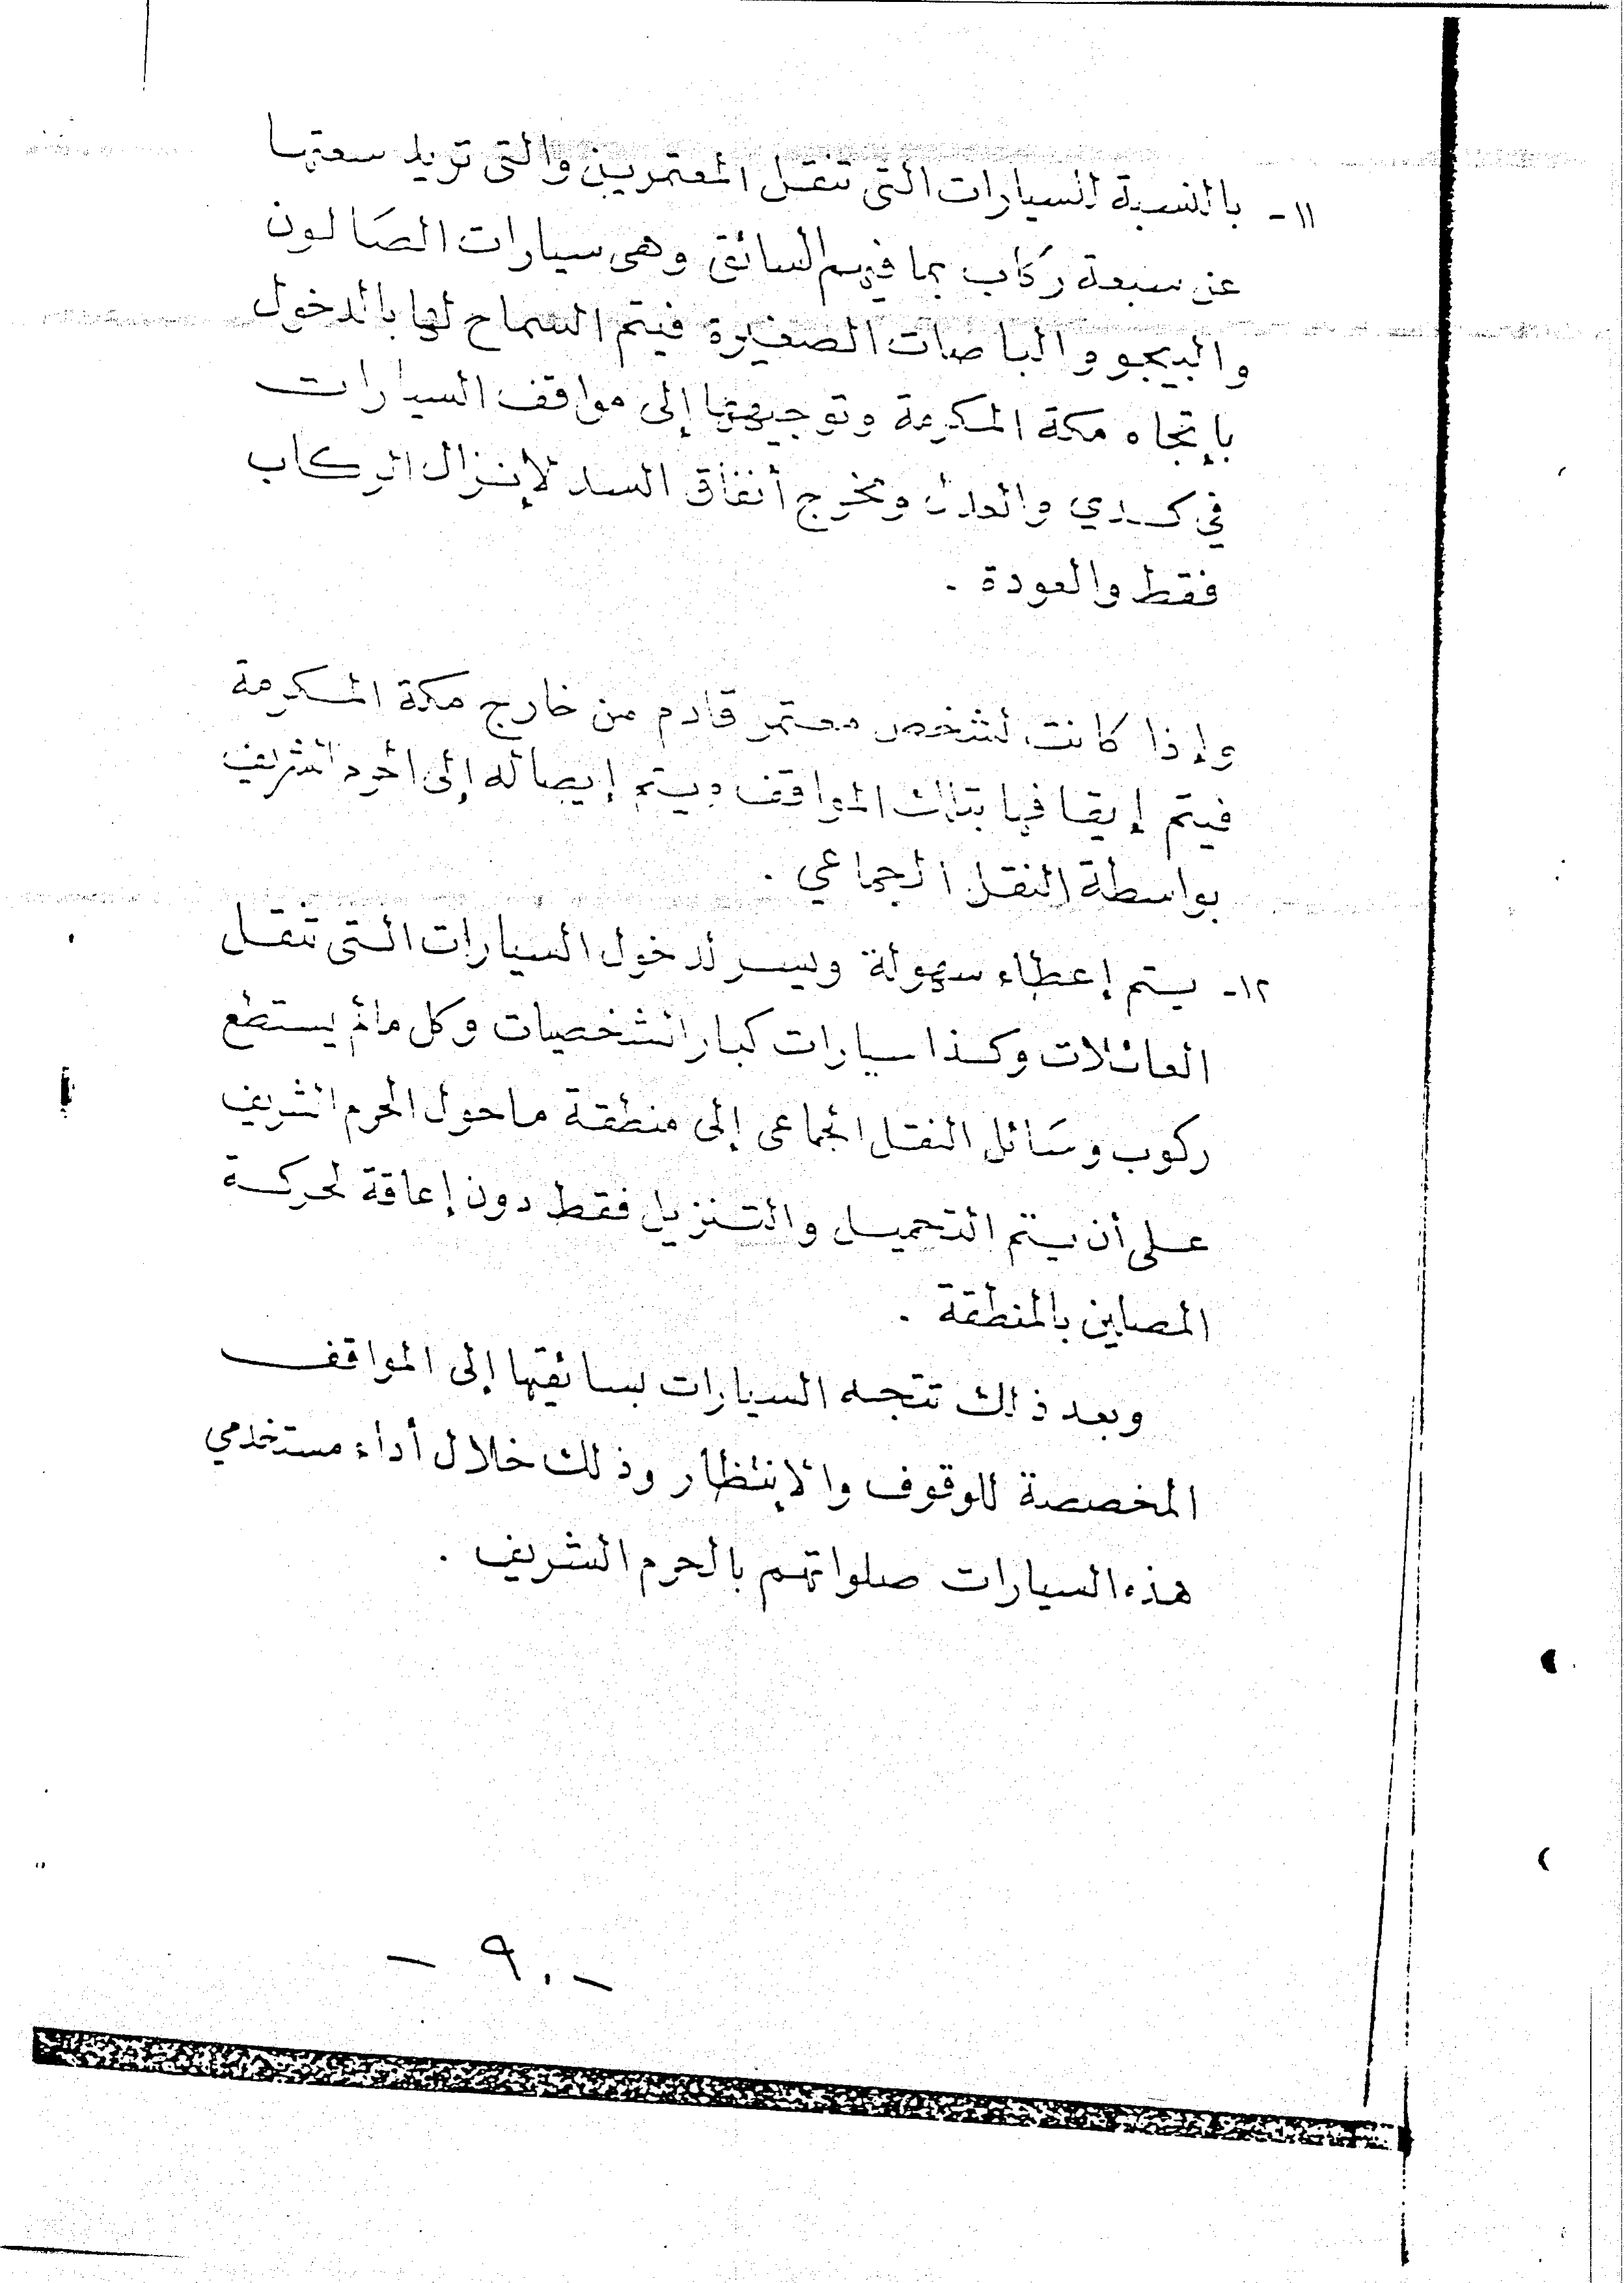 ١١- بالنسبة للسيارات التى تنقل المعتمرين والتى تزيد سعتها
عن سبعة ركاب بما فيهم السائق وهى سيارات الصالون
والبيجو والباصات الصغيرة فيتم السماح لها بالدخول
بإتجاه مكة المكرمة وتوجيهها إلى مواقف السيارات
في كدي والعدل ومخرج أنفاق السد لإنزال الركاب
فقط والعودة .
وإذا كانت لشخص معتمر قادم من خارج مكة المكرمة
فيتم إيقافها بتلك المواقف ويتم إيصاله إلى الحرم الشريف
بواسطة النقل الجماعي .
١٢- يتم إعطاء سهولة ويسر لدخول السيارات التى تنقل
العائلات وكذا سيارات كبار الشخصيات وكل مالم يستطع
ركوب وسَائل النقل الجماعى إلى منطقة ماحول الحرم الشريف
على أن يتم التحميل والتنزيل فقط دون إعاقة لحركة
المصلين بالمنطقة .
وبعد ذلك تتجه السيارات بسائقيها إلى المواقف
المخصصة للوقوف والإنتظار وذلك خلال أداء مستخدمي
هذه السيارات صلواتهم بالحرم الشريف .
- ٩٠ -